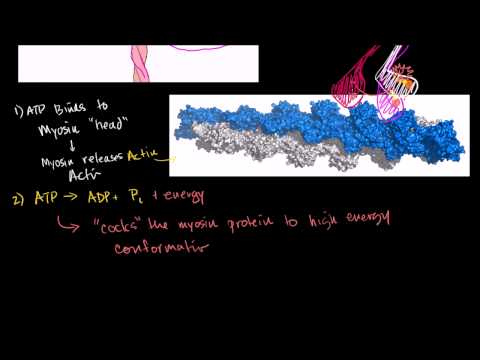 1) ATP Binds to
Myosin "head"
↓
Myosin releases Actin
Actin
2) ATP → ADP + Pi + energy
↳ "cocks" the myosin protein to high energy
conformation